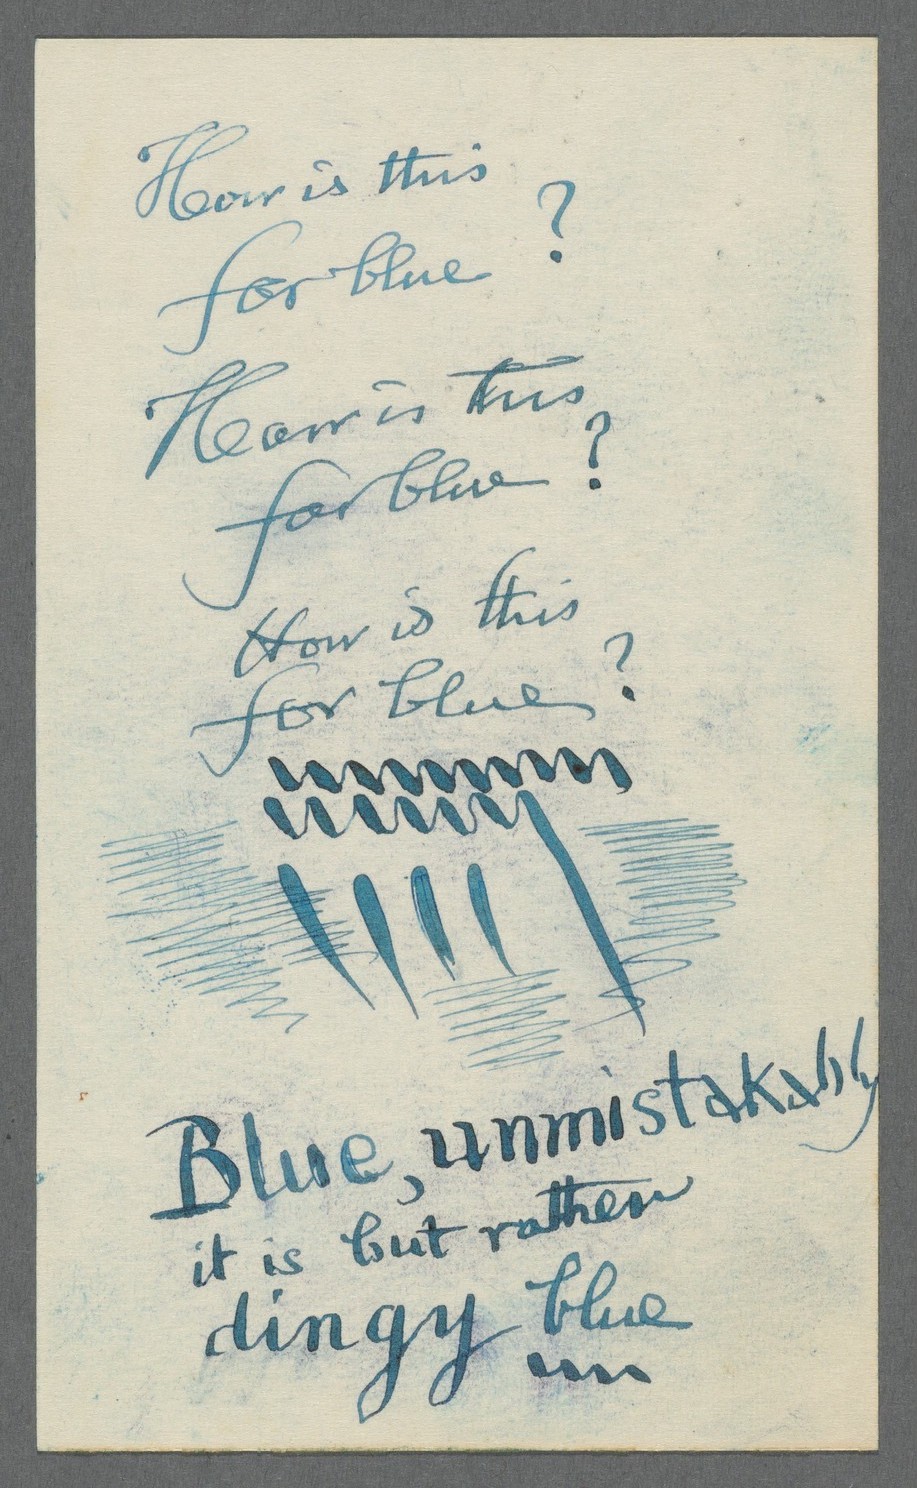 How is this
for blue ?
How is this
for blue ?
How is this
for blue ?
Blue, unmistakably
it is but rather
dingy blue